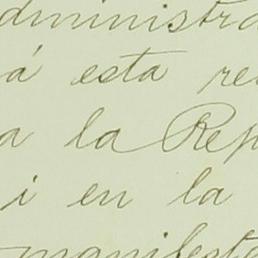 dministra
á esta re
a la Rep
i en la
manifesta